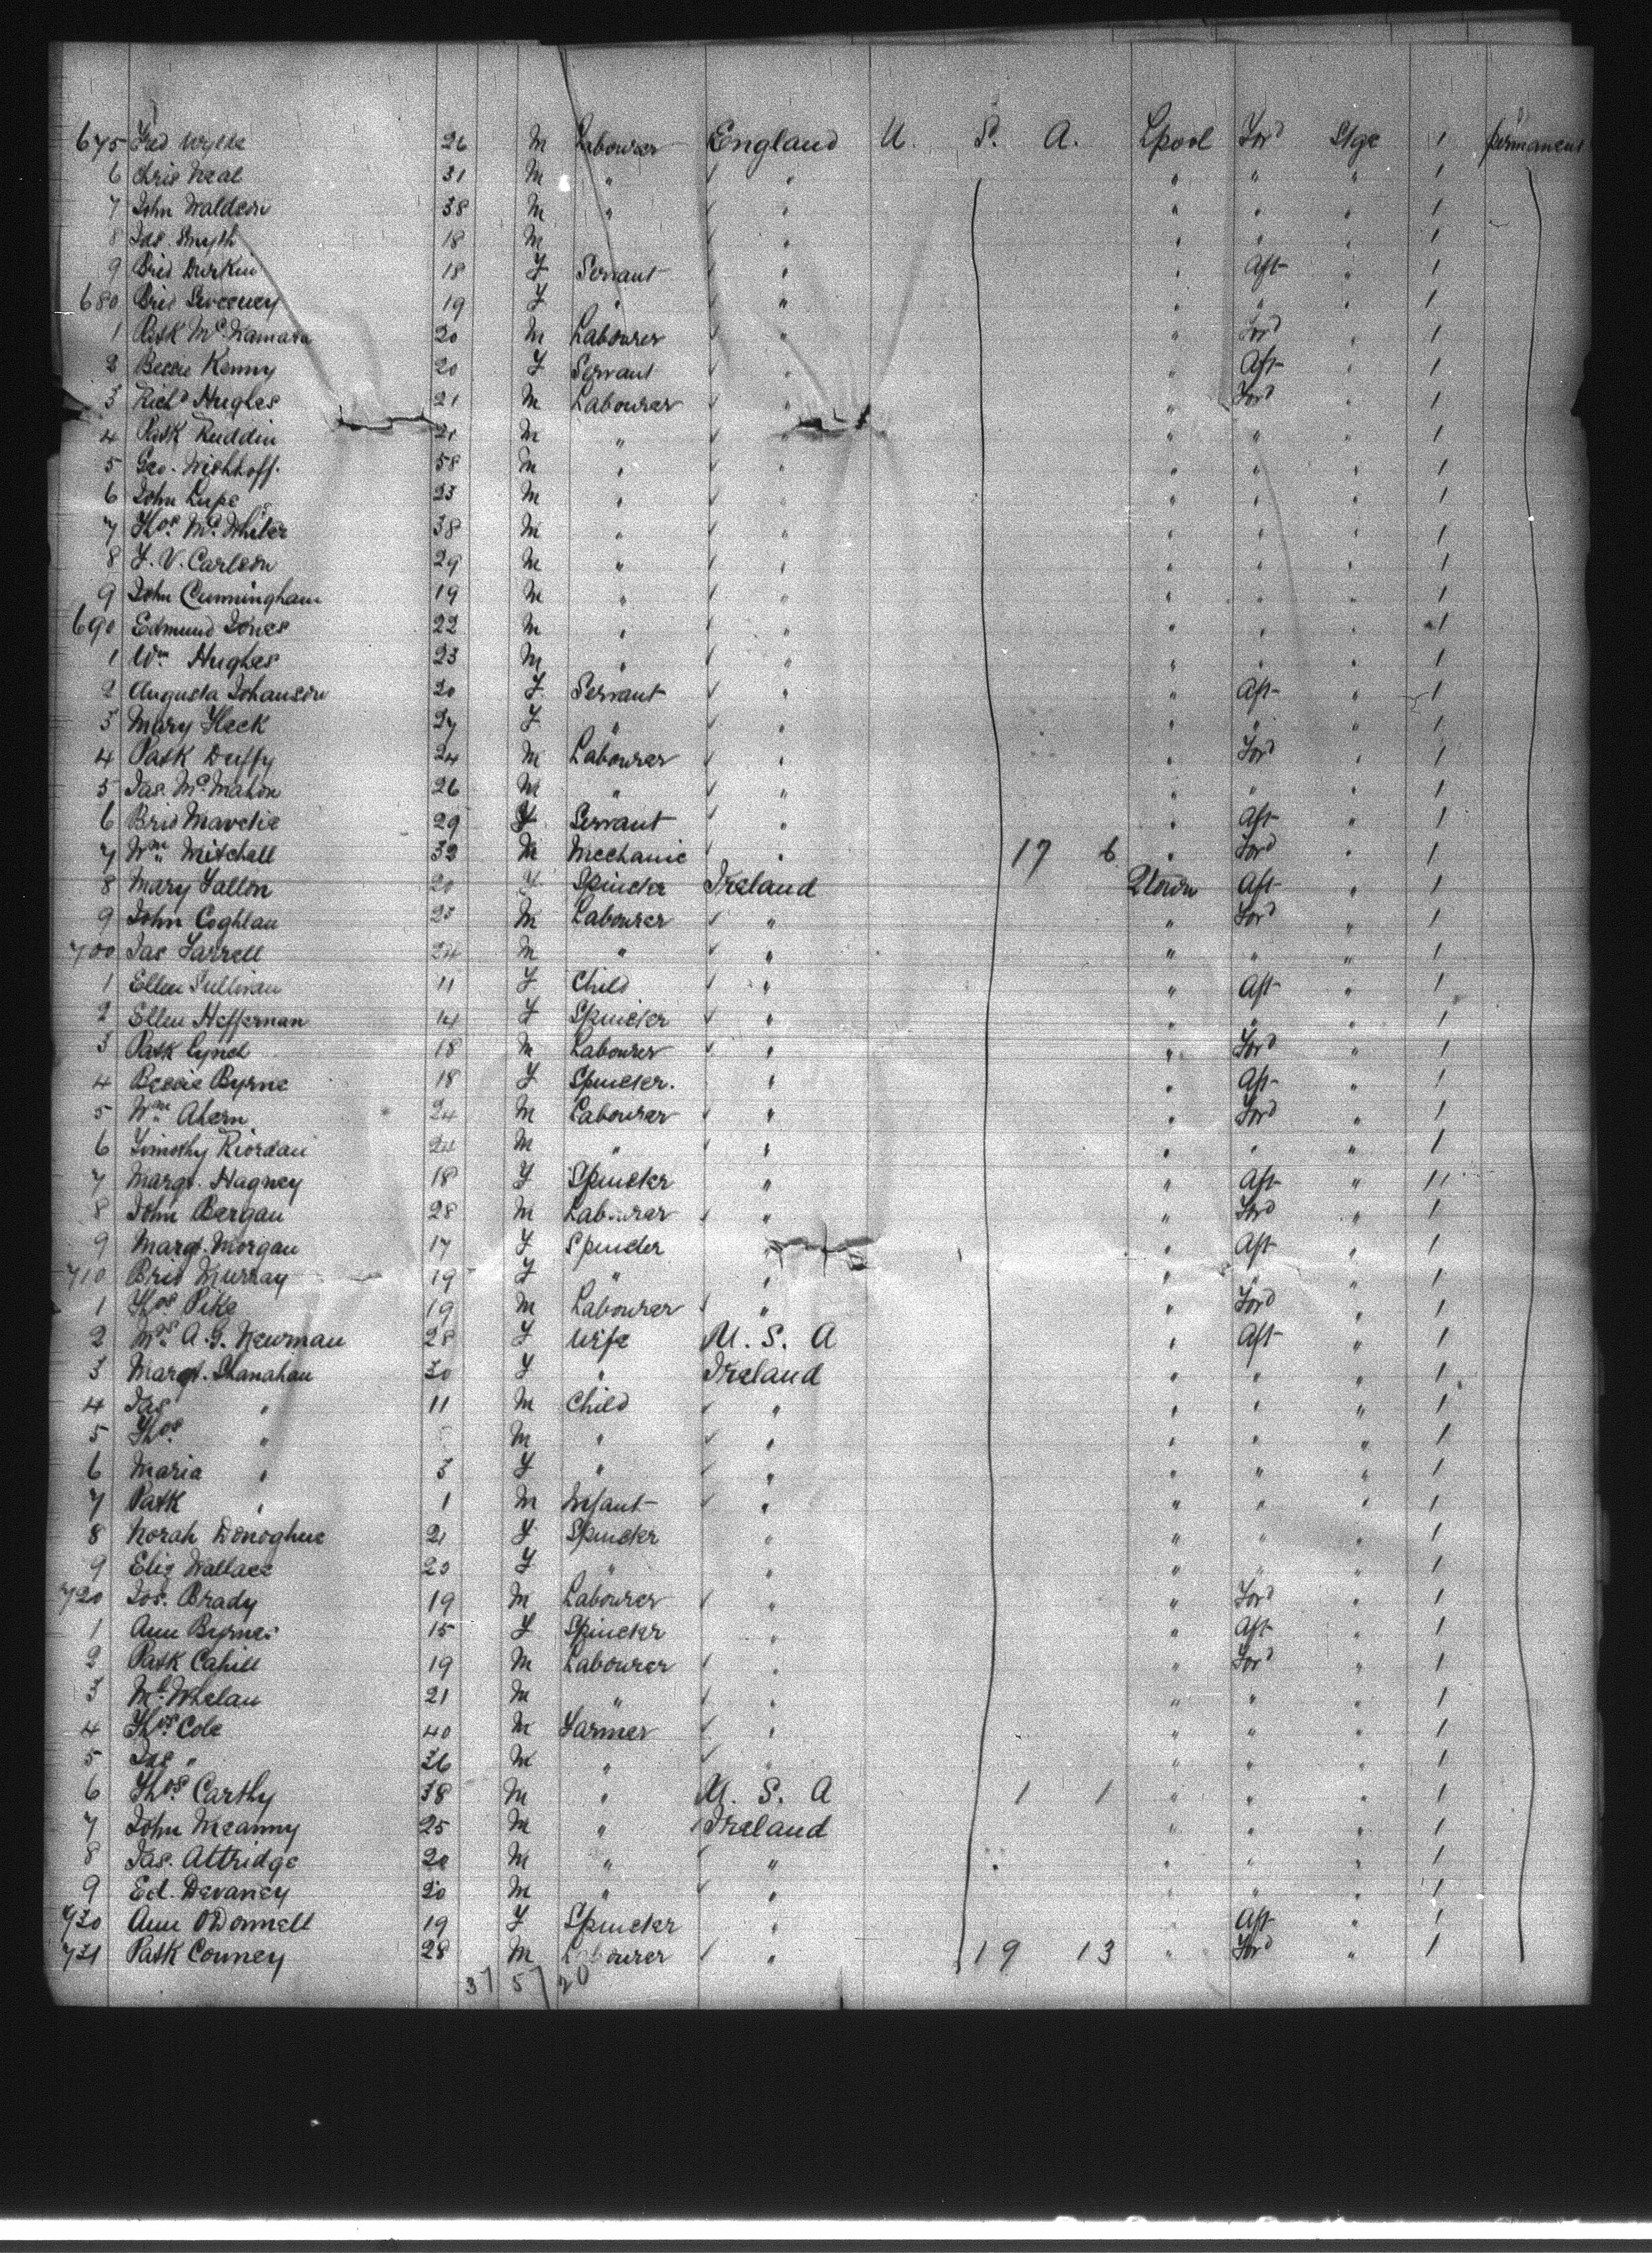 675 Fred Wylde 26 M Labourer England U. S. A. Lpool Ford Stge 1 permanent
6 Chris Neal 31 M " " " " " 1
7 John Waldson 38 M " " " " " 1
8 Jas. Smyth 18 M " " " " 1
9 Brid Durkin 18 F Servant " " Aft " 1
680 Brid Sweeney 19 F " " " " " 1
1 Patk McNamara 20 M Labourer " " Ford " 1
2 Bessie Kenny 20 F Servant " " Aft " 1
3 Richd Hughes 21 M Labourer " " Ford " 1
4 Patk Ruddin 21 M " " " " " 1
5 Geo. Wishhoff. 58 M " " " " " 1
6 John Lupe 23 M " " " " " 1
7 Thos. McWhiter 38 M " " " " " 1
8 F. V. Carlson 29 M " " " " " 1
9 John Cunningham 19 M " " " " " 1
690 Edmund Jones 22 M " " " " " 1
1 Wm Hughes 23 M " " " " " 1
2 Augusta Johanson 20 F Servant " " Aft " 1
3 Mary Fleck 27 F " " " " " 1
4 Patk Duffy 24 M Labourer " " Ford " 1
5 Jas. McMahon 26 M " " " " " 1
6 Brid 29 F Servant " " Aft " 1
7 Wm. Mitchell 32 M Mechanic " 17 6 " Ford " 1
8 Mary Fallon 20 F Spinster Ireland Qtown Aft " 1
9 John Coghlan 23 M Labourer " " Ford " 1
700 Jas Farrell 24 M " " " " " 1
1 Ellen Sullivan 11 F Child " " Aft " 1
2 Ellen Heffernan 14 F Spinster " " " " 1
3 Patk Lynch 18 M Labourer " " Ford " 1
4 Bessie Byrne 18 F Spinster. " " Aft " 1
5 Wm. Ahern 24 M Labourer " " Ford " 1
6 Timothy Riordan 24 M " " " " " 1
7 Margt. Hagney 18 F Spinster " " Aft " 11
8 John Bergan 28 M Labourer " " Ford " 1
9 Margt. Morgan 17 F Spinster " " Aft " 1
710 Brid Murray 19 F " " " " " 1
1 Thos. Pike 19 M Labourer " " Ford " 1
2 Mrs. A. G. Newman 28 F Wife U. S. A " Aft " 1
3 Margt. Shanahan 30 F " Ireland " " " 1
4 Jas " 11 M Child " " " " 1
5 Thos. " M " " " " " 1
6 Maria " 3 F " " " " " 1
7 Patk " 1 M Infant " " " " 1
8 Norah Donoghue 21 F Spinster " " " " 1
9 Eliz Wallace 20 F " " " " " 1
720 Jos. Brady 19 M Labourer " " Ford " 1
1 Ann Byrnes 15 F Spinster " " Aft " 1
2 Patk Cahill 19 M Labourer " " Ford " 1
3 Ml. Whelan 21 M " " " " " 1
4 Thos. Cole 40 M Farmer " " " " 1
5 Jas " 36 M " " " " " 1
6 Thos. Carthy 38 M " U. S. A 1 1 " " " 1
7 John Meanny 25 M " Ireland " " " 1
8 Jas. Attridge 20 M " " " " " 1
9 Ed. Devaney 20 M " " " " " 1
730 Ann O'Donnell 19 F Spinster " " Aft " 1
731 Patk Conney 28 M Labourer " 19 13 " Ford " 1
37 57 20